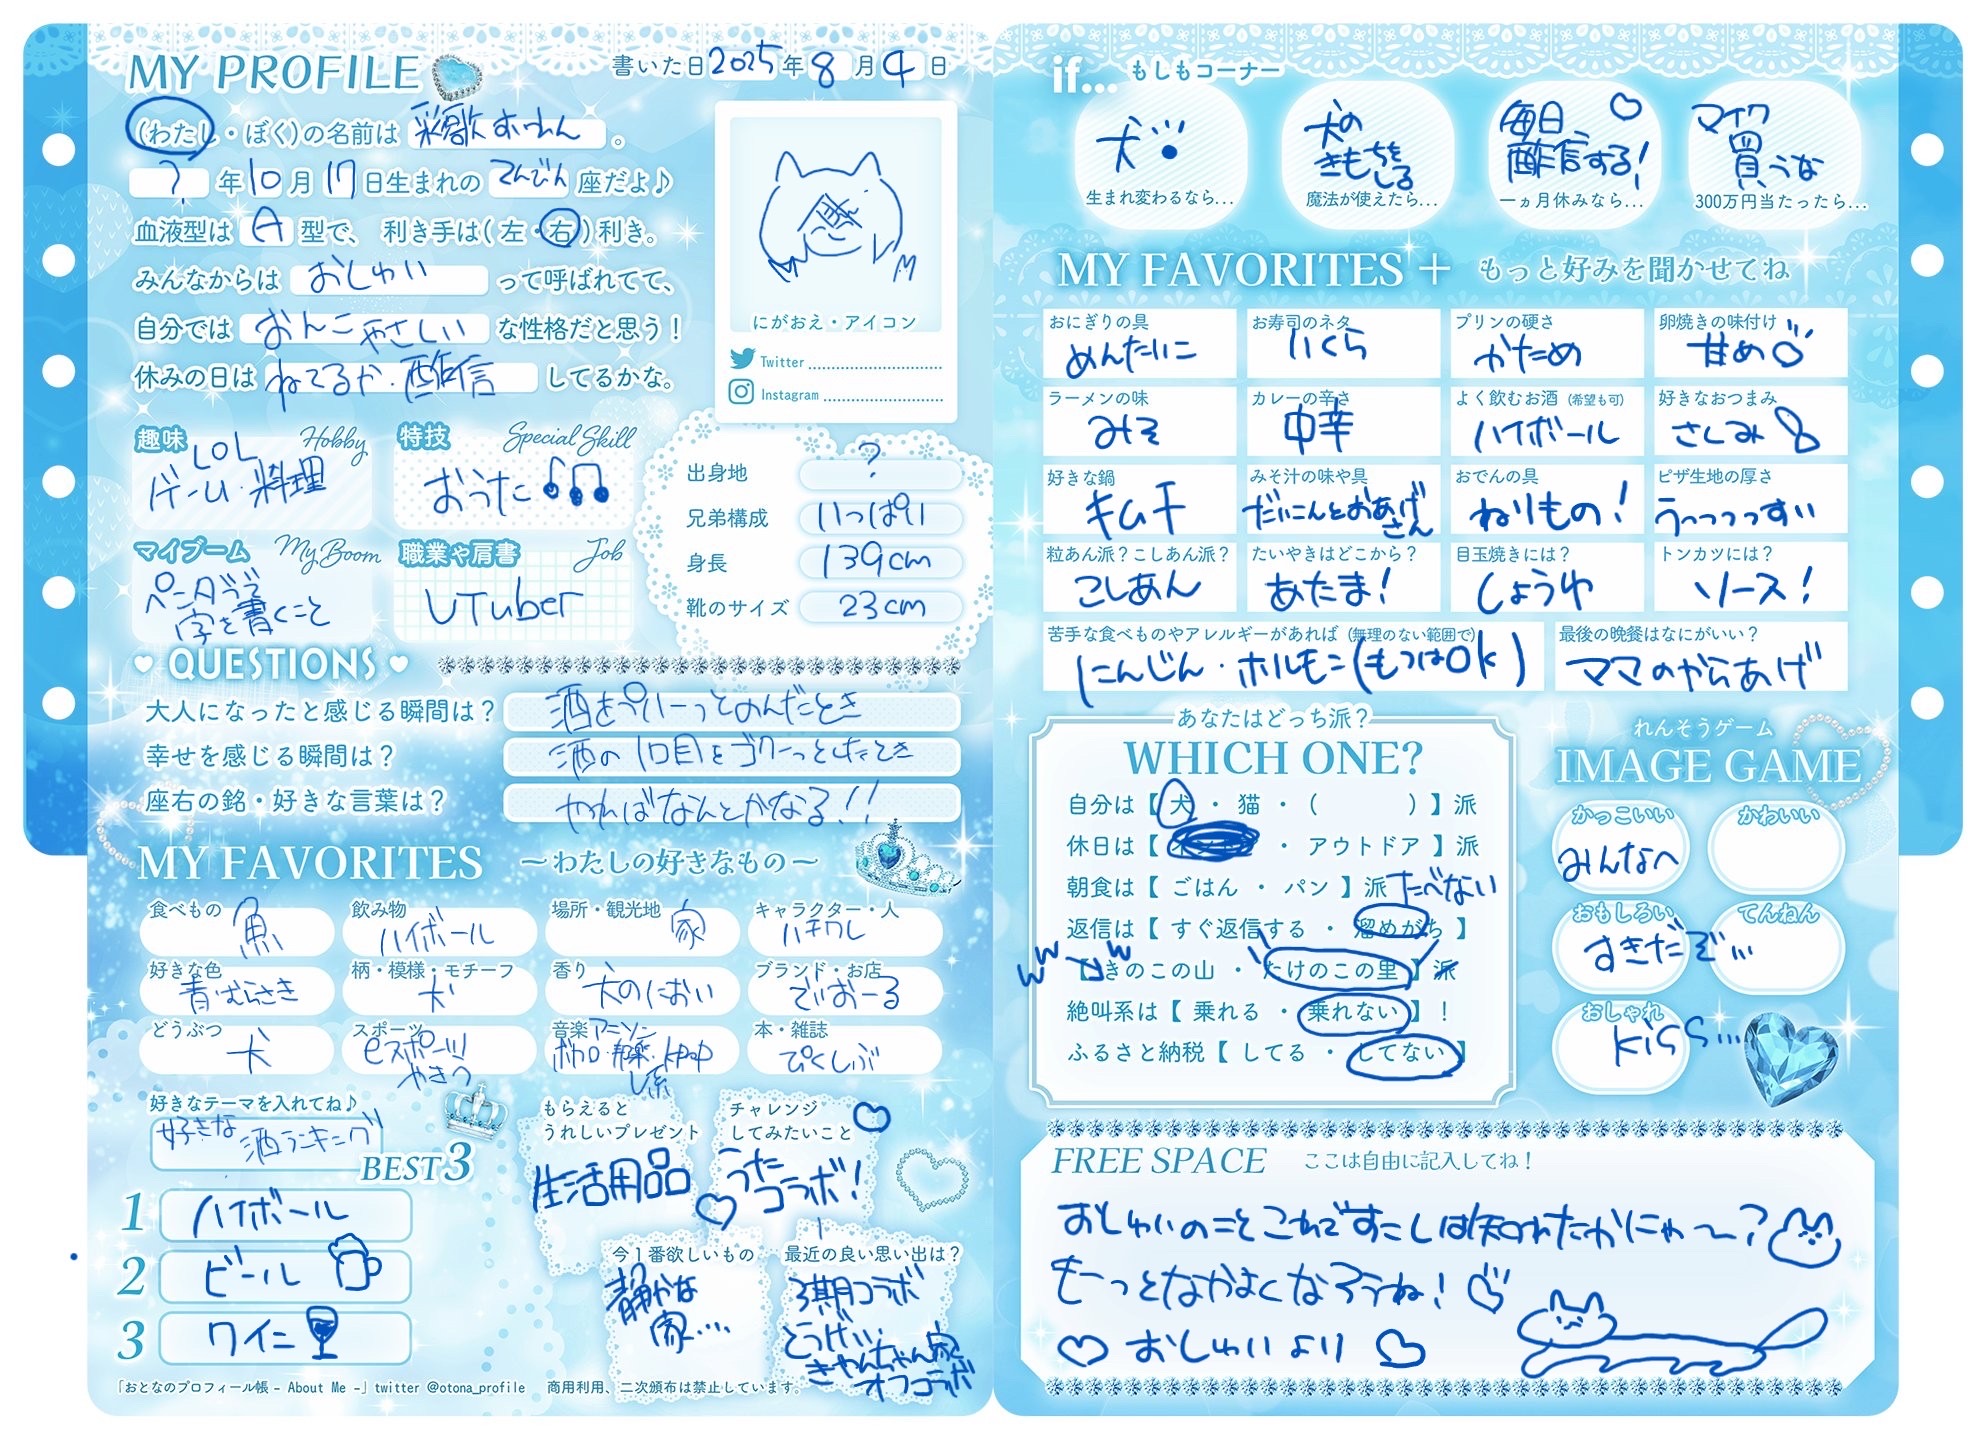 MY PROFILE
書いた日 2025年 8月 4日
(わたし・ぼく)の名前は 彩歌 おゅれん 。
? 年 10 月 17 日生まれの てんびん 座だよ♪
血液型は A 型で、 利き手は( 左・右 )利き。
みんなからは おしゅい って呼ばれてて、
自分では おんこやさしい な性格だと思う!
休みの日は ねてるか・配信 してるかな。
にがおえ・アイコン
Twitter
Instagram
趣味 Hobby
LOL
ゲーム・料理
特技 Special Skill
おうた
マイブーム My Boom
ペンタブで
字を書くこと
職業や肩書 Job
VTuber
出身地 ?
兄弟構成 いっぱい
身長 139cm
靴のサイズ 23cm
QUESTIONS
大人になったと感じる瞬間は? 酒をぷはーっとのんだとき
幸せを感じる瞬間は? 酒の1口目をゴクーっとしたとき
座右の銘・好きな言葉は? やればなんとかなる!!
MY FAVORITES ～わたしの好きなもの～
食べもの 魚
飲み物 ハイボール
場所・観光地 家
キャラクター・人 ハチワレ
好きな色 青・むらさき
柄・模様・モチーフ 犬
香り 犬のにおい
ブランド・お店 でぃおーる
どうぶつ 犬
スポーツ eスポーツ
やきう
音楽 アニソン
ボカロ・邦楽・kpop
し系
本・雑誌 ぴくしぶ
好きなテーマを入れてね♪
好きな酒ランキング
BEST3
1 ハイボール
2 ビール
3 ワイン
もらえると
うれしいプレゼント
生活用品
チャレンジ
してみたいこと
うた
コラボ!
今1番欲しいもの
静かな
家....
最近の良い思い出は?
3期コラボ
とうげい、
きゃんちゃん家と
オフコラボ
「おとなのプロフィール帳 - About Me -」twitter @otona_profile 商用利用、二次頒布は禁止しています。
if... もしもコーナー
犬
生まれ変わるなら...
犬の
きもちを
しる
魔法が使えたら...
毎日
配信する!
一ヵ月休みなら...
マイク
買うな
300万円当たったら...
MY FAVORITES + もっと好みを聞かせてね
おにぎりの具 めんたいこ
お寿司のネタ いくら
プリンの硬さ かため
卵焼きの味付け 甘め
ラーメンの味 みそ
カレーの辛さ 中辛
よく飲むお酒 (希望も可) ハイボール
好きなおつまみ さしみ
好きな鍋 キムチ
みそ汁の味や具 だいこんとおあげさん
おでんの具 ねりもの!
ピザ生地の厚さ うっっっっすい
粒あん派?こしあん派? こしあん
たいやきはどこから? あたま!
目玉焼きには? しょうゆ
トンカツには? ソース!
苦手な食べものやアレルギーがあれば (無理のない範囲で) にんじん・ホルモン(もつはOk)
最後の晩餐はなにがいい? ママのからあげ
あなたはどっち派?
WHICH ONE?
自分は【 犬 ・ 猫 ・ ( ) 】派
休日は【 ・ アウトドア 】派
朝食は【 ごはん ・ パン 】派 たべない
返信は【 すぐ返信する ・ 溜めがち 】
【 きのこの山 ・ たけのこの里 】派
絶叫系は【 乗れる ・ 乗れない 】!
ふるさと納税【 してる ・ してない 】
れんそうゲーム
IMAGE GAME
かっこいい かわいい
みんなへ
おもしろい てんねん
すきだぞ…
おしゃれ
kiss...
FREE SPACE ここは自由に記入してね!
おしゅいのことこれですこしは知れたかにゃ〜?
もーっとなかよくなろうね!
おしゅいより